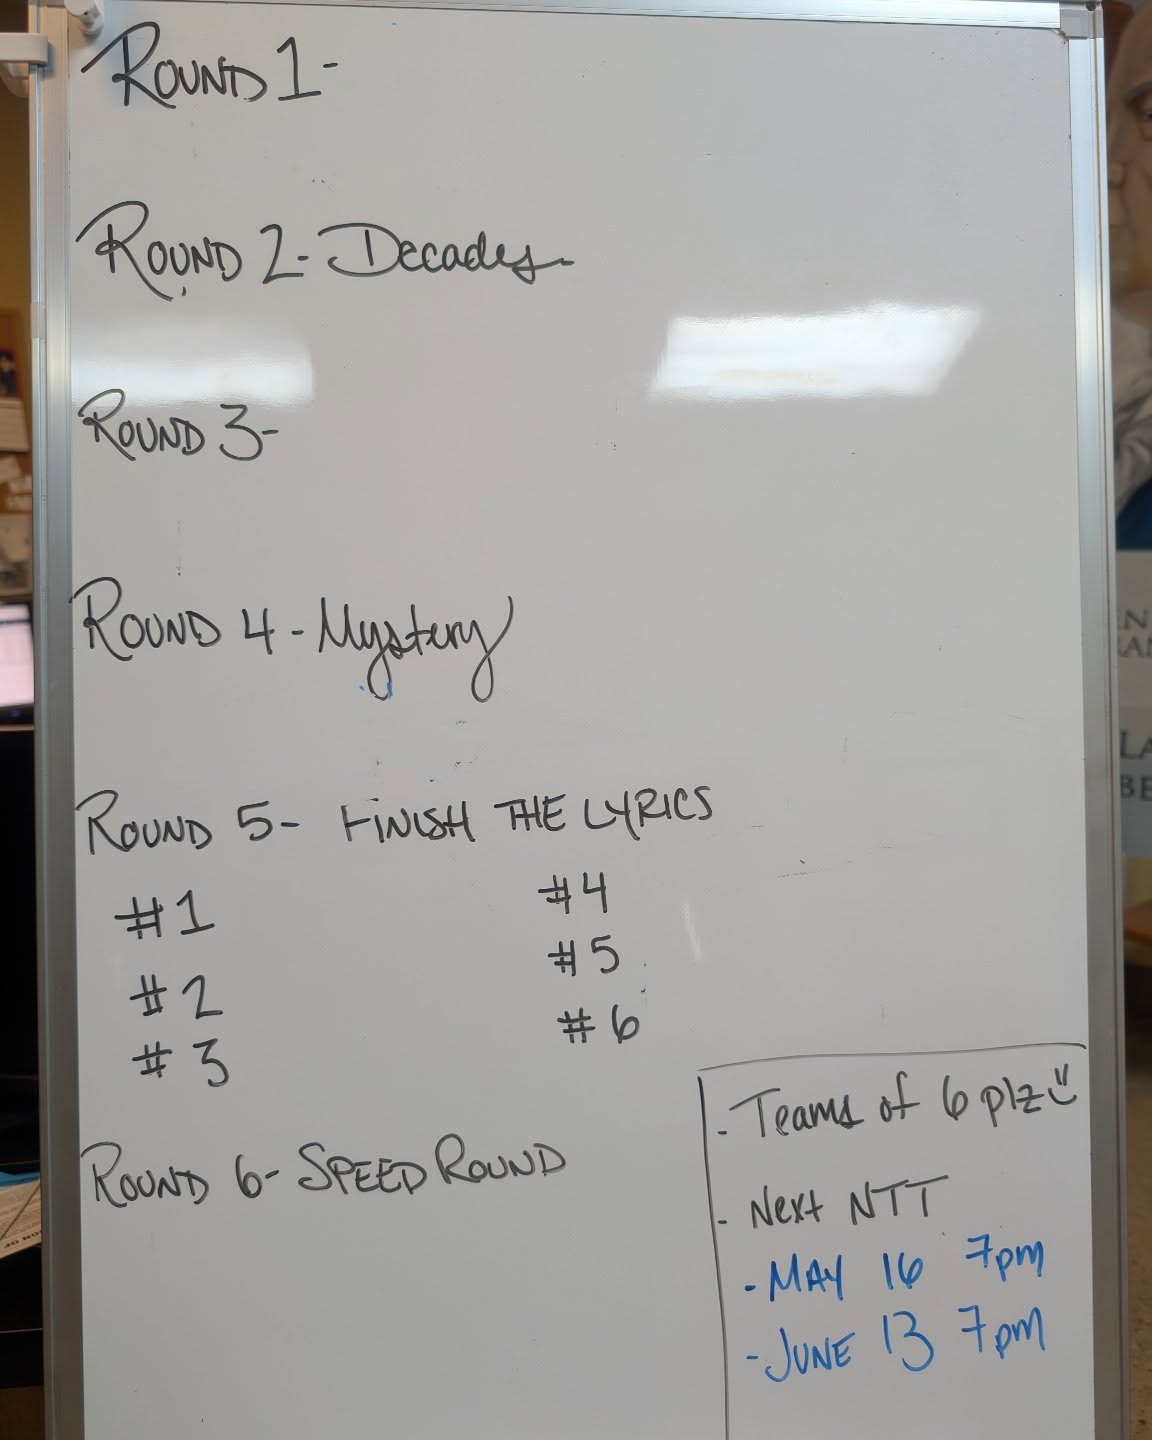 ROUND 1-
ROUND 2- Decades
ROUND 3-
ROUND 4 - Mystery
ROUND 5- FINISH THE LYRICS
#1
#2
#3
#4
#5
#6
ROUND 6- SPEED ROUND
- Teams of 6 plz
- Next NTT
- MAY 16 7pm
- JUNE 13 7pm